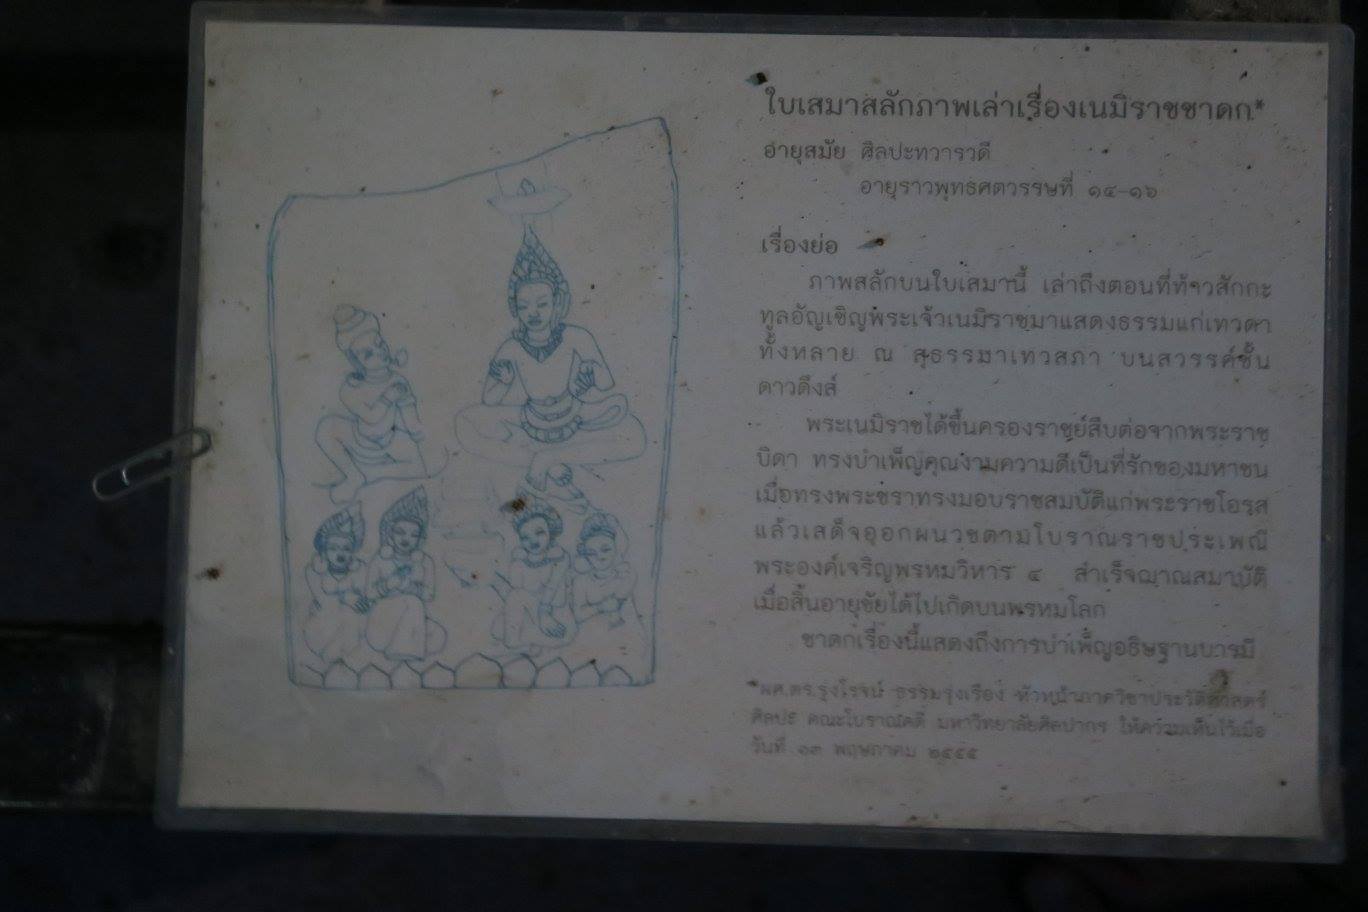 ใบเสมาสลักภาพเล่าเรื่องเนมิราชชาดก*
อายุสมัย ศิลปะทวารวดี
อายุราวพุทธศตวรรษที่ ๑๔-๑๖
เรื่องย่อ
ภาพสลักบนใบเสมานี้ เล่าถึงตอนที่ท้าวสักกะ
ทูลอัญเชิญพระเจ้าเนมิราชมาแสดงธรรมแก่เทวดา
ทั้งหลาย ณ สุธรรมาเทวสภา บนสวรรค์ชั้น
ดาวดึงส์
พระเนมิราชได้ขึ้นครองราชย์สืบต่อจากพระราช
บิดา ทรงบำเพ็ญคุณงามความดีเป็นที่รักของมหาชน
เมื่อทรงพระชราทรงมอบราชสมบัติแก่พระราชโอรส
แล้วเสด็จออกผนวชตามโบราณราชประเพณี
พระองค์เจริญพรหมวิหาร ๔ สำเร็จฌาณสมาบัติ
เมื่อสิ้นอายุขัยได้ไปเกิดบนพรหมโลก
ชาดกเรื่องนี้แสดงถึงการบำเพ็ญอธิษฐานบารมี
*ผศ.ดร.รุ่งโรจน์ ธรรมรุ่งเรือง หัวหน้าภาควิชาประวัติศาสตร์
ศิลปะ คณะโบราณคดี มหาวิทยาลัยศิลปากร ให้ความเห็นไว้เมื่อ
วันที่ ๑๓ พฤษภาคม ๒๕๕๕